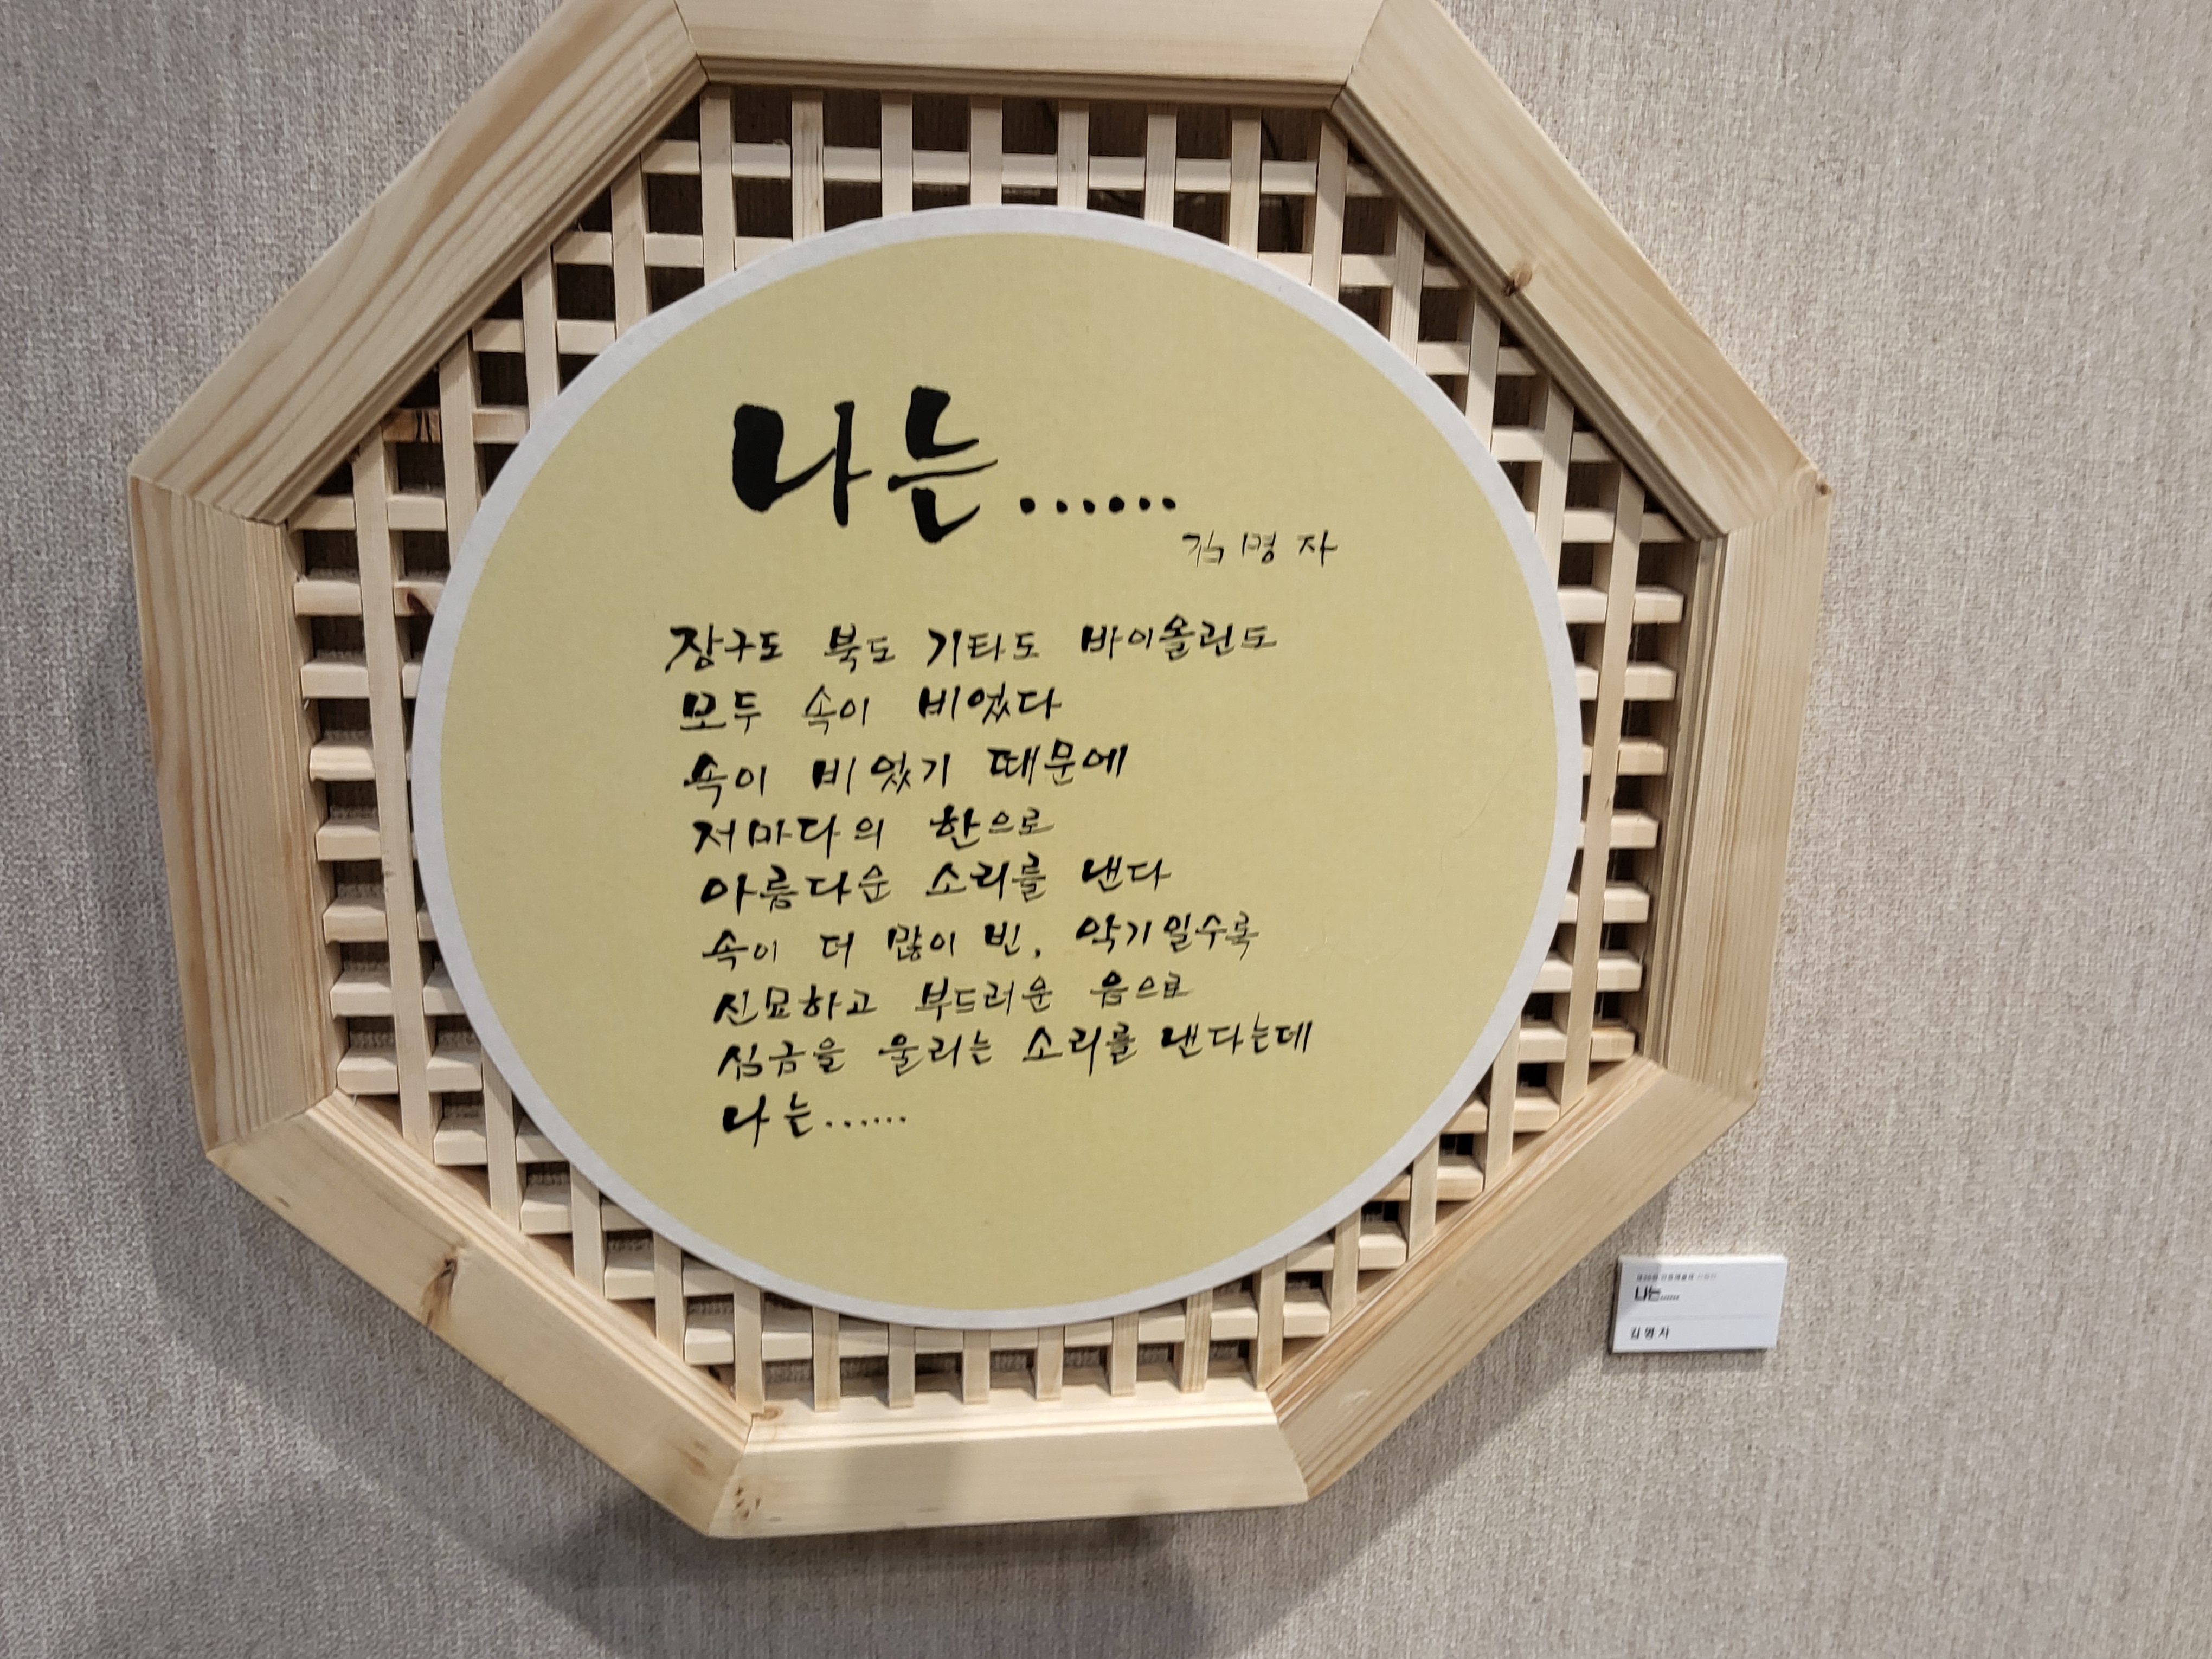 나는......
김명자
장구도 북도 기타도 바이올린도
모두 속이 비었다
속이 비었기 때문에
저마다의 한으로
아름다운 소리를 낸다
속이 더 많이 빈, 악기일수록
신묘하고 부드러운 음으로
심금을 울리는 소리를 낸다는데
나는......
나는......
김명자